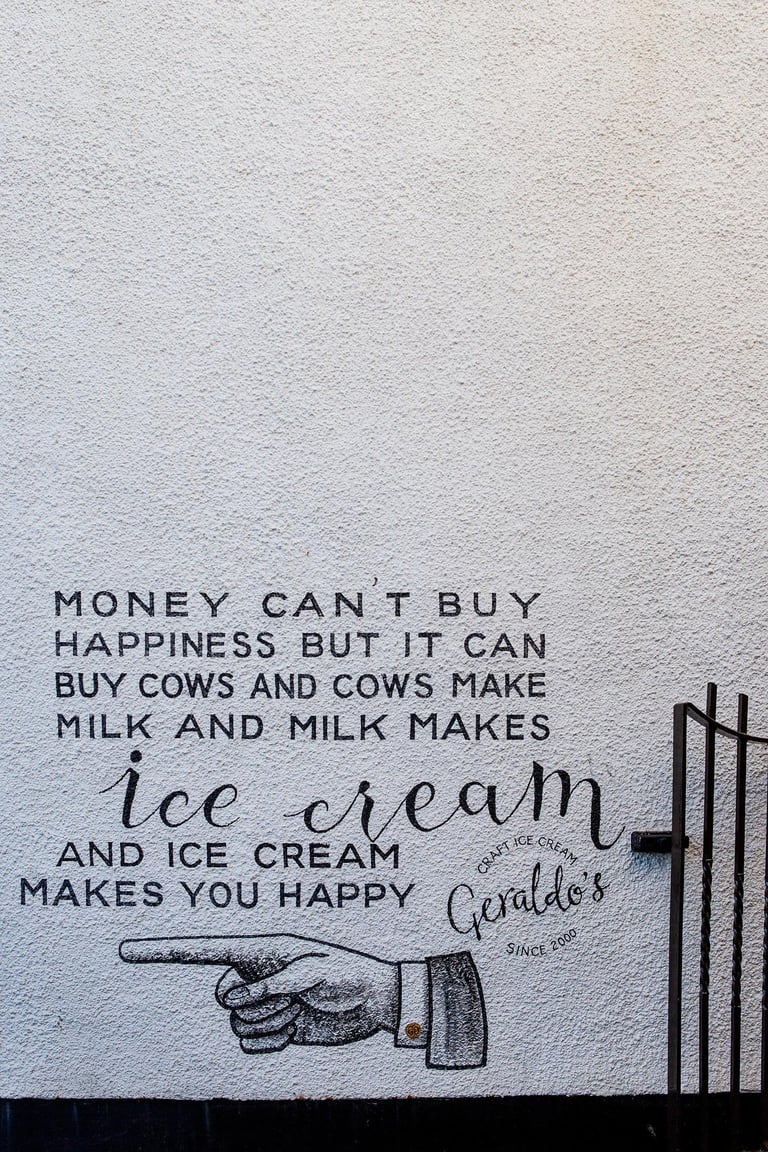 MONEY CAN'T BUY
HAPPINESS BUT IT CAN
BUY COWS AND COWS MAKE
MILK AND MILK MAKES
ice cream
AND ICE CREAM
MAKES YOU HAPPY
CRAFT ICE CREAM
Geraldo's
SINCE 2000